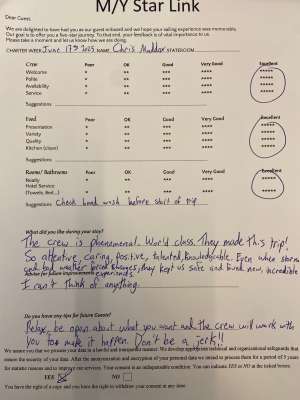 M/Y Star Link
Dear Guest,
We are delighted to have had you as our guest onboard and we hope your sailing experience was memorable.
Our goal is to offer you a five-star journey. To that end, your feedback is of vital importance to us.
Please take a moment and let us know how we are doing.
CHARTER WEEK June 17th 2023 NAME Chris Maddox STATE/COM
Crew Poor OK Good Very Good Excellent
Welcome * ** *** **** *****
Polite * ** *** **** *****
Availability * ** *** **** *****
Service * ** *** **** *****
Suggestions
Food Poor OK Good Very Good Excellent
Presentation * ** *** **** *****
Variety * ** *** **** *****
Quality * ** *** **** *****
Kitchen (clean) * ** *** **** *****
Suggestions
Rooms/ Bathrooms Poor OK Good Very Good Excellent
Ready * ** *** **** *****
Hotel Service
(Towels, Bed...) * ** *** **** *****
Suggestions Check hand wash before start of trip
What did you like during your stay?
The crew is phenomenal. World class. They made this trip!
So attentive, caring, positive, talented, knowledgable. Even when storms
and bad weather forced changes, they kept us safe and found new, incredible
Advise for future improvements experiences.
I can't think of anything.
Do you have any tips for future Guests?
Relax, be open about what you want and the crew will work with
you to make it happen. Don't be a jerk!!
We assure you that we process your data in a lawful and transparent manner. We develop appropriate technical and organizational safeguards that
ensure the security of your data. After the anonymization and encryption of your personal data we intend to process them for a period of 5 years
for statistic reasons and to improve our services. Your consent is an indispensable condition. You can indicate YES or NO at the ticked boxes.
YES NO
You have the right of a copy and you have the right to withdraw your consent in any time